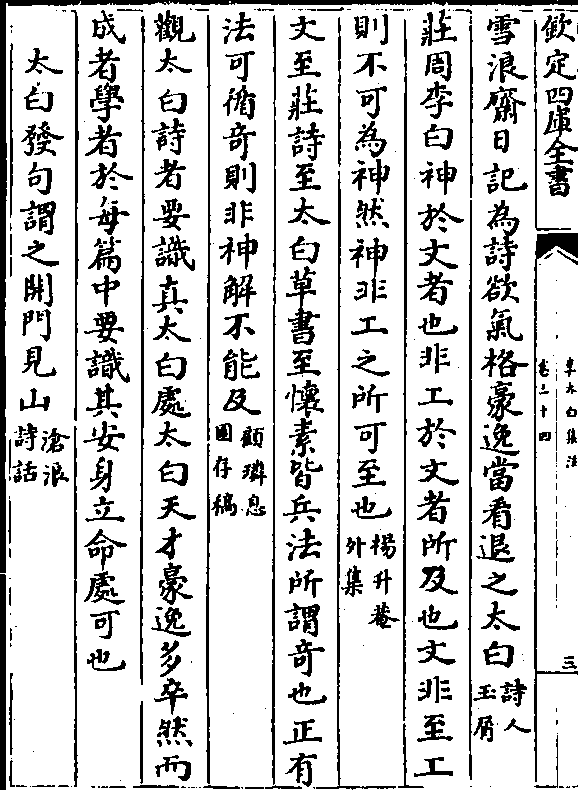 欽定四庫全書
李太白集注
卷三十四
三
雪浪齋日記為詩欲氣格豪逸當看退之太白詩人玉屑
莊周李白神於文者也非工於文者所及也文非至工
則不可為神然神非工之所可至也楊升菴外集
文至莊詩至太白草書至懷素皆兵法所謂奇也正有
法可循奇則非神解不能及顧璘息園存稿
觀太白詩者要識真太白處太白天才豪逸多卒然而
成者學者於每篇中要識其安身立命處可也
太白發句謂之開門見山滄浪詩話